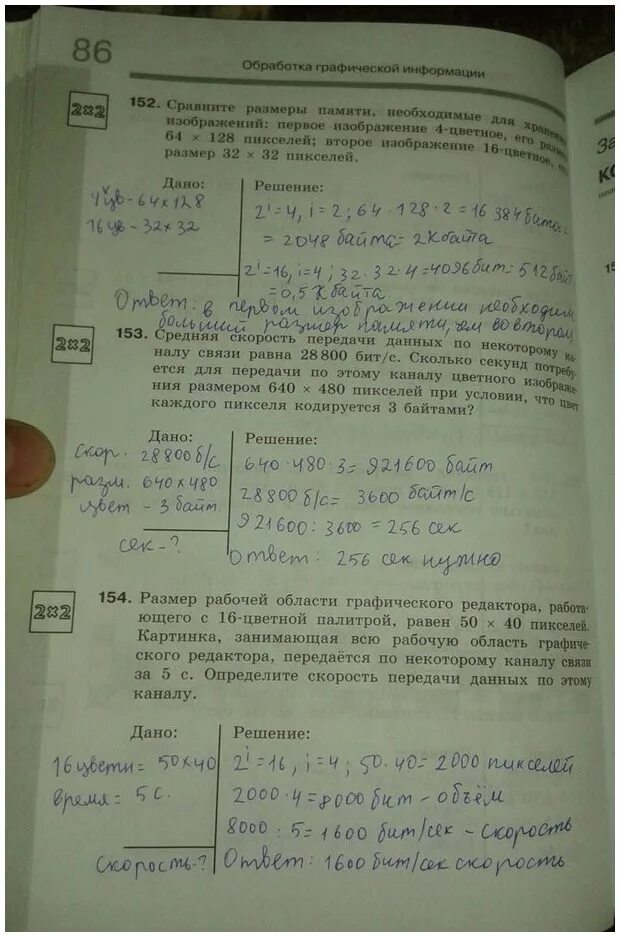 86
Обработка графической информации
2×2
152. Сравните размеры памяти, необходимые для
изображений: первое изображение 4-цветное, его
64 × 128 пикселей; второе изображение 16-цветное,
размер 32 × 32 пикселей.
Дано:
4цв - 64×128
16цв - 32×32
Решение:
2ⁱ=4, i=2; 64·128·2=16 384 бита=
= 2048 байта= 2Кбайта
2ⁱ=16, i=4; 32·32·4=4096бит=512байт
=0,5 Кбайта
Ответ: в первом изображении необходим
больший размер памяти, чем во втором
2×2
153. Средняя скорость передачи данных по некоторому ка-
налу связи равна 28 800 бит/с. Сколько секунд потребу-
ется для передачи по этому каналу цветного изображе-
ния размером 640 × 480 пикселей при условии, что цвет
каждого пикселя кодируется 3 байтами?
Дано:
скор. 28800 б/с
разм. 640×480
цвет - 3 байт.
сек-?
Решение:
640·480·3=921600 байт
28800 б/с= 3600 байт/с
921600: 3600 = 256 сек
Ответ: 256 сек нужно
2×2
154. Размер рабочей области графического редактора, работа-
ющего с 16-цветной палитрой, равен 50 × 40 пикселей.
Картинка, занимающая всю рабочую область графиче-
ского редактора, передаётся по некоторому каналу связи
за 5 с. Определите скорость передачи данных по этому
каналу.
Дано:
16цветн= 50×40
время= 5с.
Скорость-?
Решение:
2ⁱ=16, i=4; 50·40=2000 пикселей
2000·4=8000 бит - объём
8000 : 5=1600 бит/сек - скорость
Ответ: 1600 бит/сек скорость